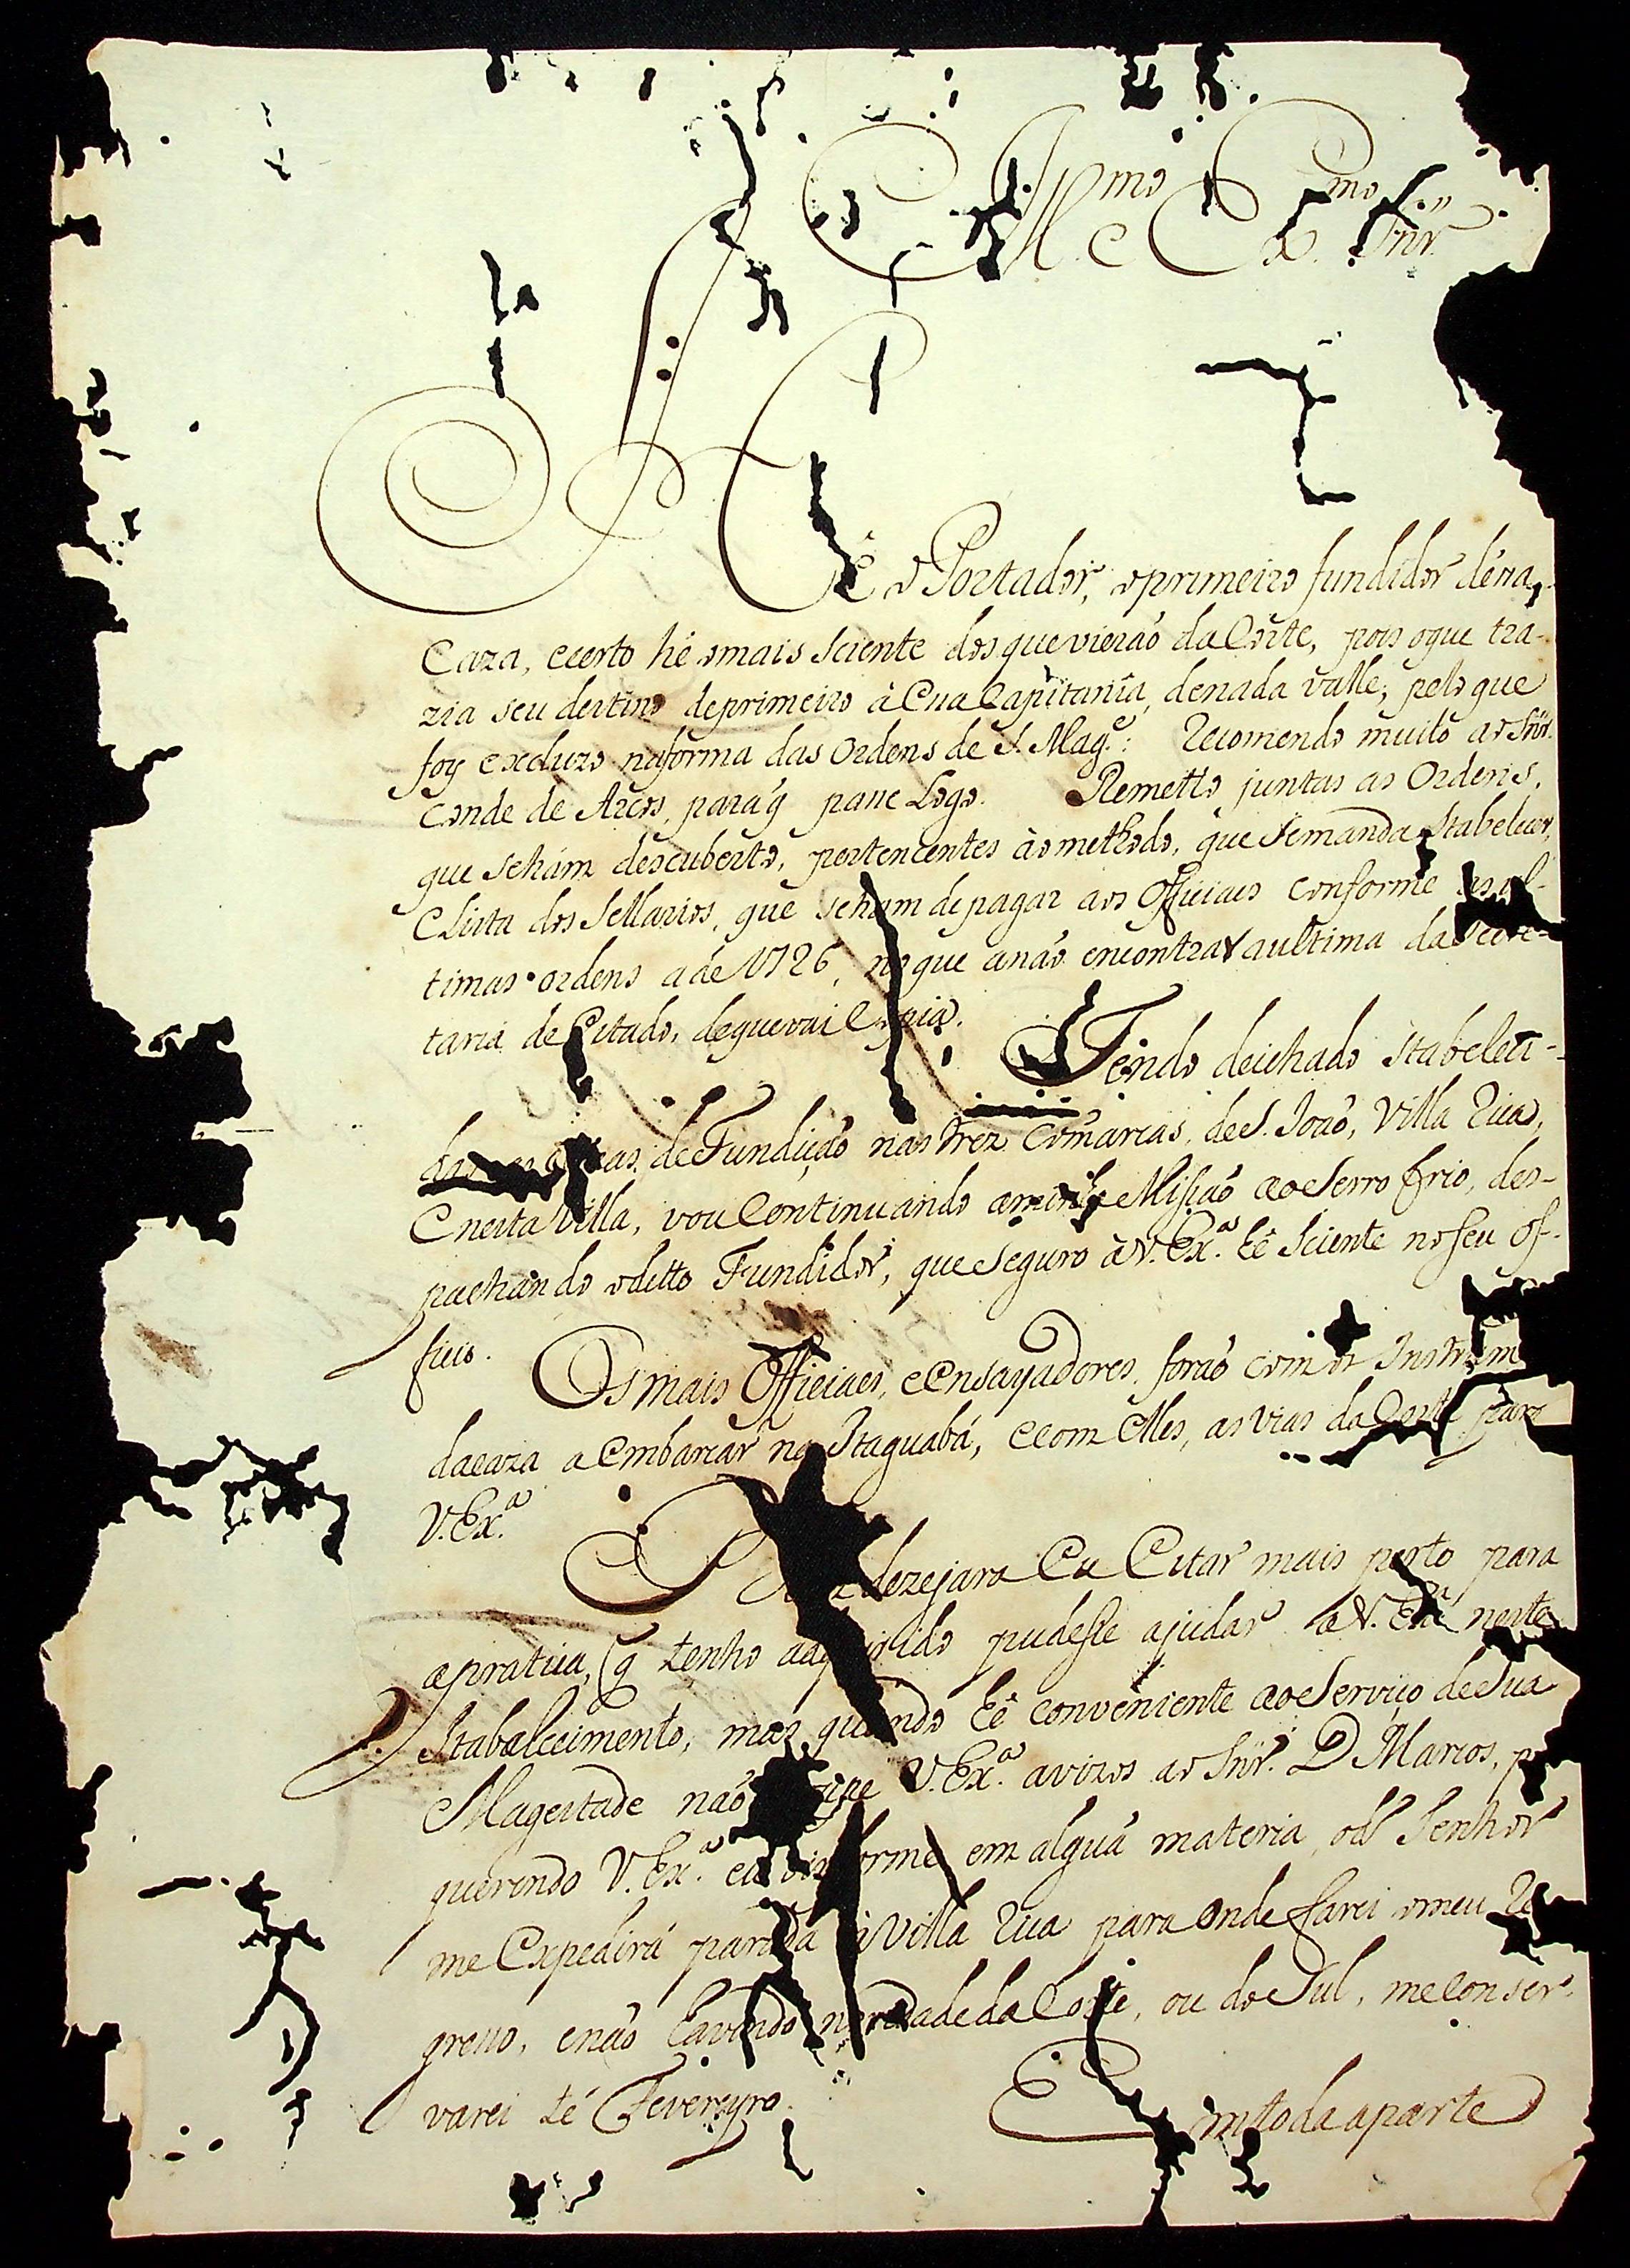 Ill.mo e Ex.mo Snr.
He o Portador, o primeiro fundidor dena
Caza, ecerto hé omais Sciente dos que vierão da Corte, pois oque tra-
zia seu destino deprimeiro à Essa Capitania, denada valle, pelo que
foy excluzo naforma das Ordens de S. Mag.e: Recomendo muito ao Snr.
Conde de Arcos, para q passe Logo. Remetto juntas as Ordens,
que Seham descuberto, pertencentes áo methodo, que Semanda Stabelecer,
e Lista dos Sellarios, que seham depagar aos Officiaes conforme as ul-
timas ordens a de 1726, no que anão encontrar aultima da Secre-
taria de Estado, deque vai Copia.
Tendo deichado Stabeleci-
das as Cazas de Fundição nas trez Cómarcas, de S. João, Villa Rica,
e nesta Villa, vou Continuando aminha Missão ao Serro frio, des-
pachando odito Fundidor, que Seguro à V. Ex.a hé Sciente no seu of-
ficio.
Os mais Officiaes, e Ensayadores, forão com os Instrum
dacaza a Embarcar no Itaguabá, e com Elles, as Vias da Corte para
V. Ex.a
dezejara Eu Estar mais perto para
apratica, q tenho adquirido pudesse ajudar a V. Ex.a neste
Stabalecimento, mas quando hé conveniente ao Serviço de Sua
Magestade não V. Ex.a avizos ao Snr. D Marcos, p
querendo V. Ex.a eu o informe em alguá materia, od.o Senhor
me Expedirá parada á Villa Rica para onde farei omeu Re
greço, enão havendo novidade da Corte, ou do Sul, me Conser-
varei té Fevereyro.
Em toda aparte